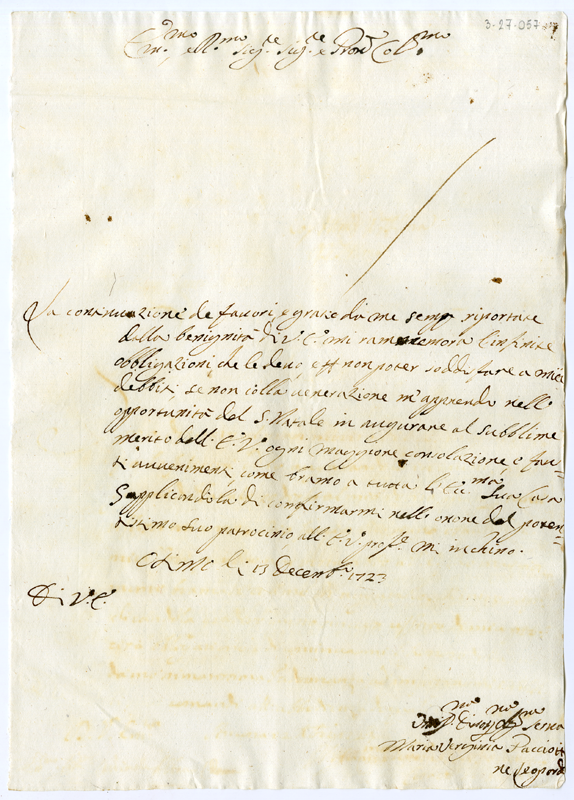 3-27-057
Em.mo e R.mo Sig.e Sig.e e Pron Col.mo
La continuazione de favori, e grazie da me semp. riportate
dalla benignità di V.E. mi rammemora l'infinite
obbligazioni che le devo, e non poter soddisfare a miei
debbiti, se non colla venerazione m'apprendo nell'
opportunità del S. Natale in augurare al subblime
merito dell'E.V. ogni maggiore consolazione e fau-
ti avvenimenti, come bramo a tutta l'Ecc.ma Sua Casa
Supplicandola di confirmarmi nell'onore del poten-
tissimo suo patrocinio all'E.V. prof.e m'inchino.
Osimo li 13 Decemb. 1723
Di V.E.
Serva
Maria Verginia Pacciott
ne Leopardi